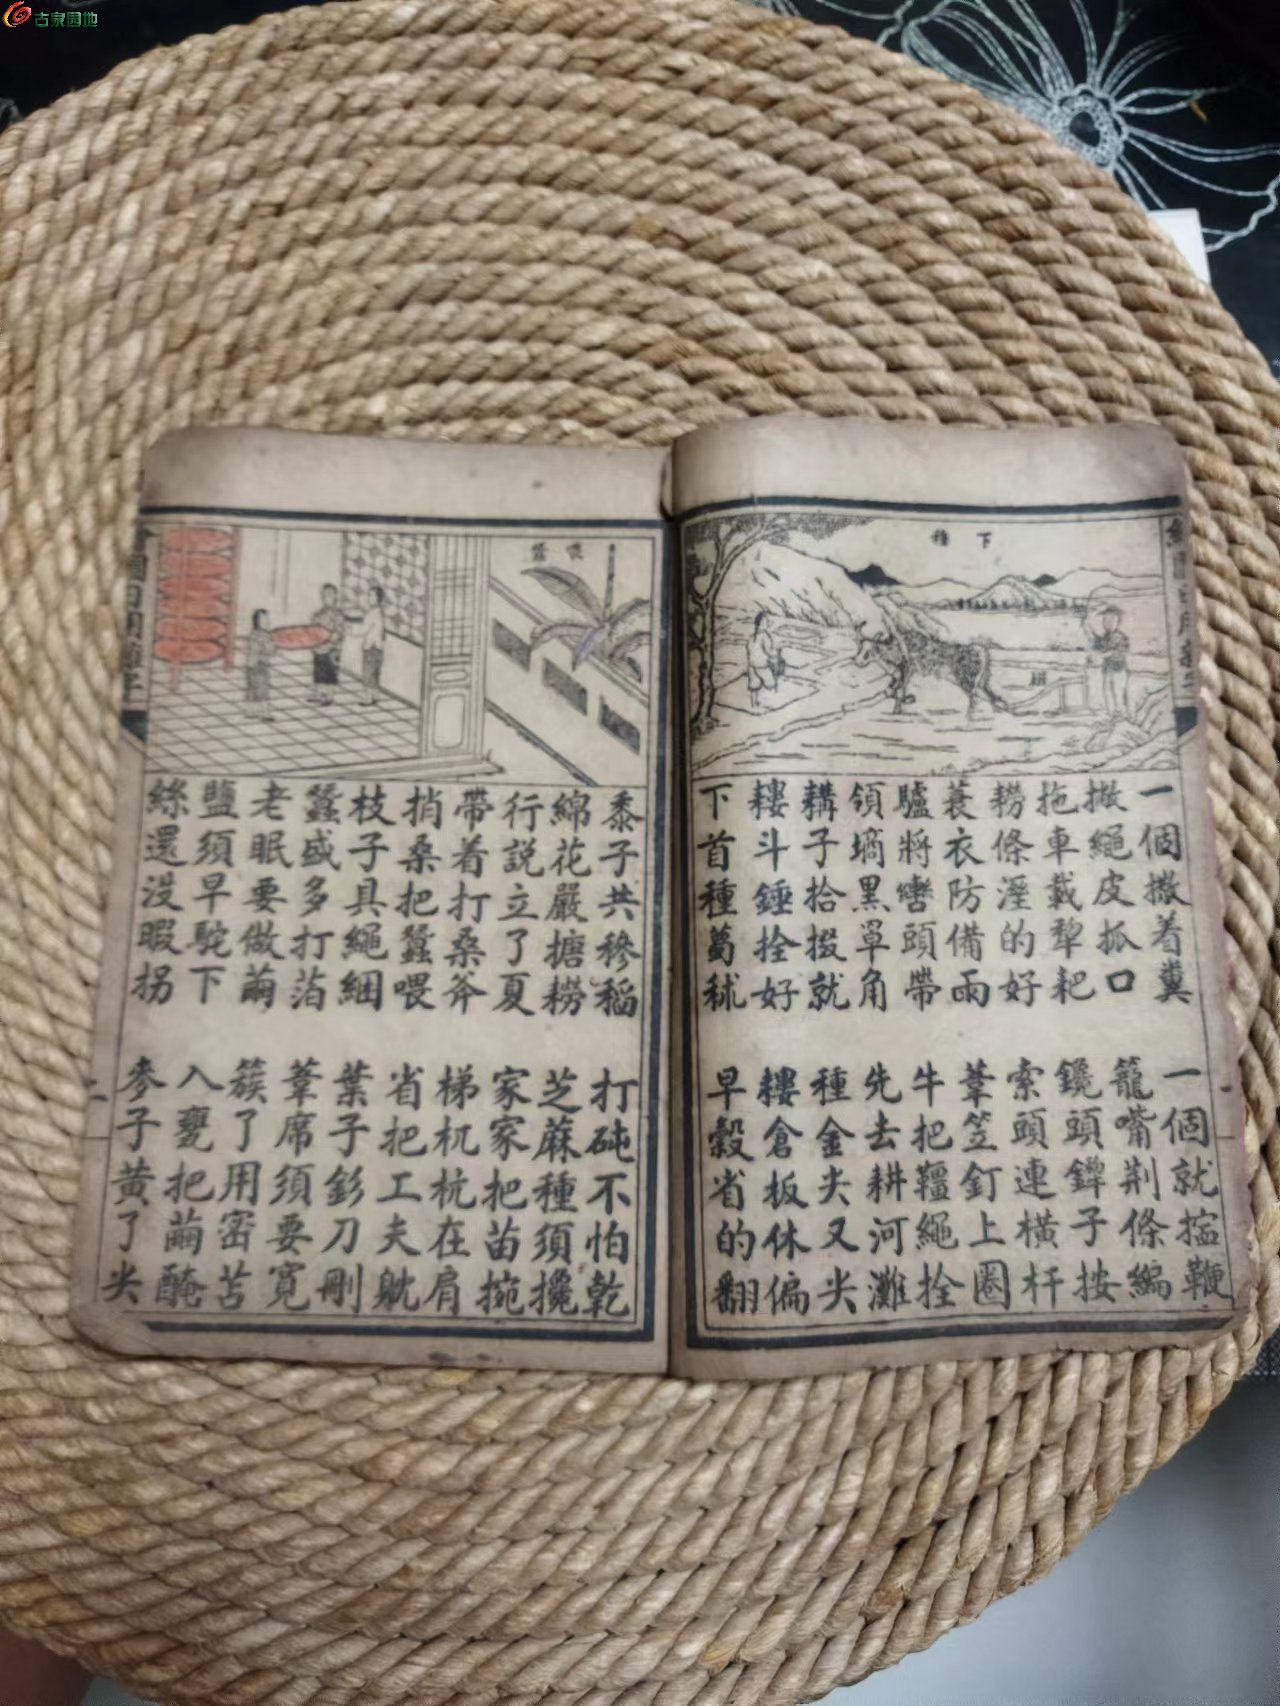 古泉园地
下種
一個撒着糞
一個就㨪鞭
撇繩皮抓口
籠嘴荆條編
拖車載犁耙
鑱頭鏵子按
耮條溼的好
索頭連橫杆
蓑衣防備雨
葦笠釘上圈
驢將轡頭帶
牛把韁繩拴
領墒黑單角
先去耕河灘
耩子拾掇就
種金尖又尖
耬斗錘拴好
耬倉板休偏
下首種葛秫
早穀省的翻
黍子共穇稻
打砘不怕乾
綿花嚴搪耮
芝蔴種須攙
行説立了夏
家家把苗㨪
帶着打桑斧
梯杌杭在肩
捎桑把蠶喂
省把工夫躭
枝子具繩綑
葉子彭刀剮
蠶盛多打箔
葦席須要寬
老眠要做繭
簇了用密苫
鹽須早駝下
入甕把繭醃
絲還没暇拐
麥子黄了尖